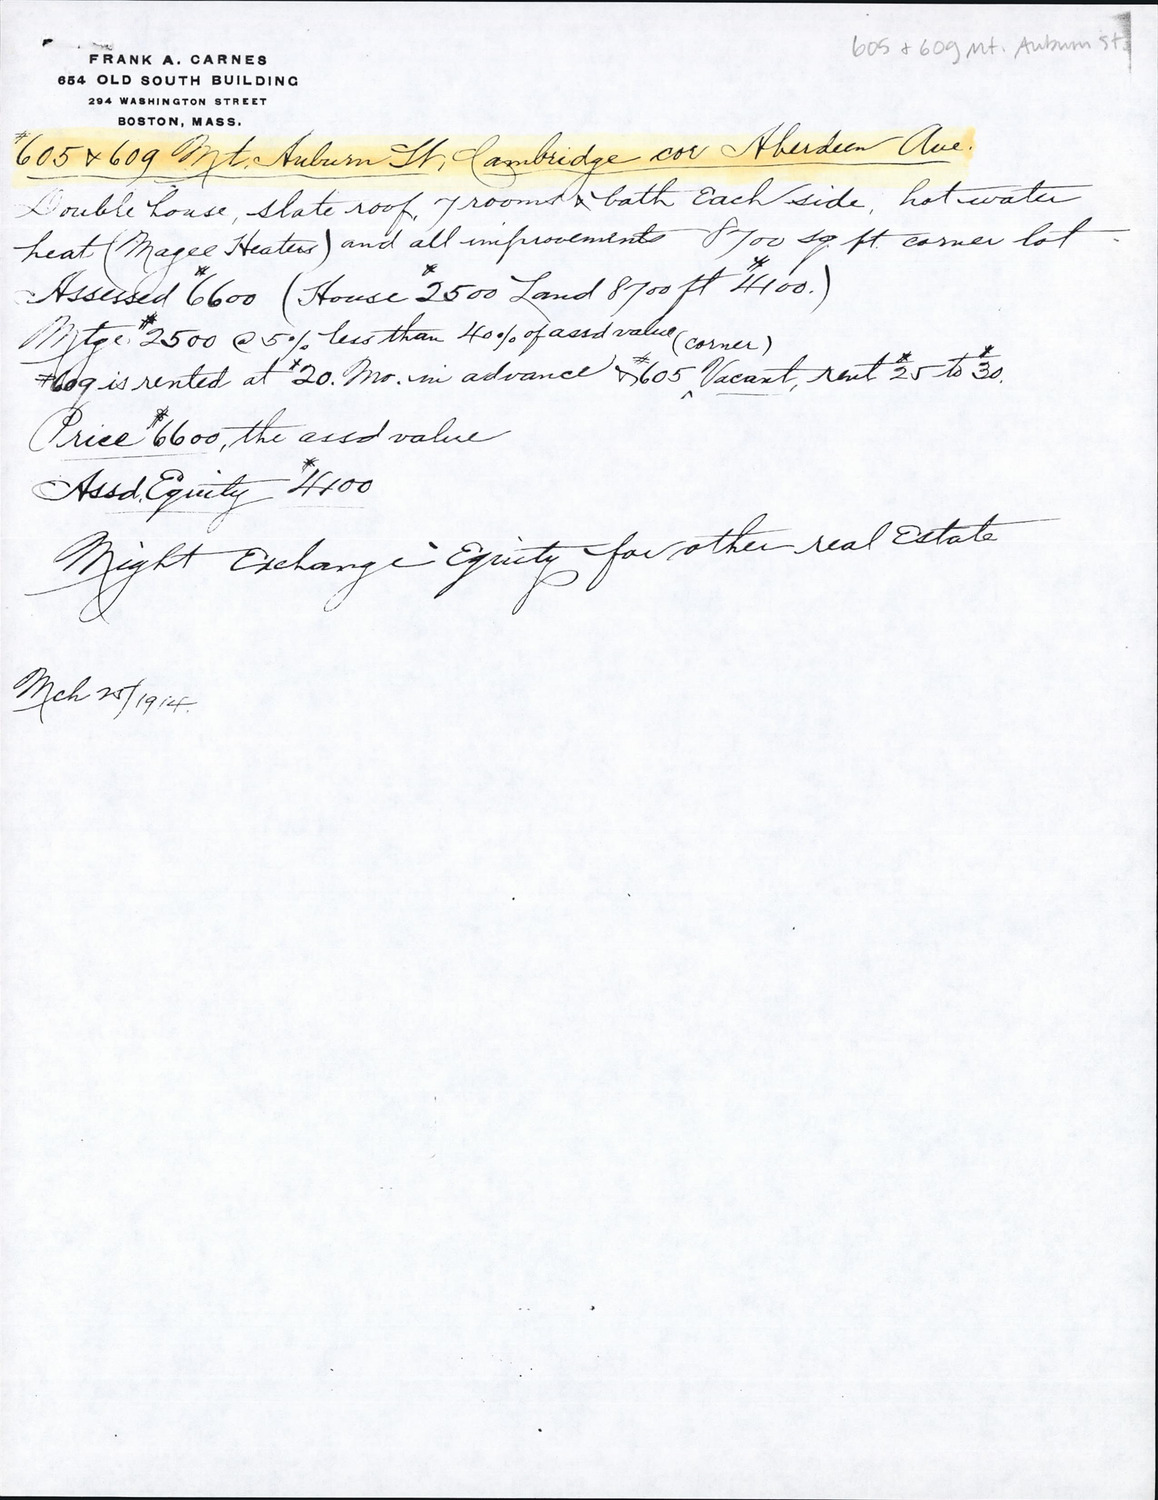 605 & 609 Mt. Auburn St.
FRANK A. CARNES
654 OLD SOUTH BUILDING
294 WASHINGTON STREET
BOSTON, MASS.
#605 & 609 Mt. Auburn St, Cambridge cor Aberdeen Ave.
Double house, slate roof, 7 rooms & bath Each side, hot water
heat (Magee Heaters) and all improvements 8700 sq. ft. corner lot -
Assessed $6600 (House $2500 Land 8700 ft $4100.)
Mtge $2500 @ 5% less than 40% of assd value (corner)
#609 is rented at $20. Mo. in advance & #605 Vacant, rent $25 to $30.
Price $6600, the assd value
Assd. Equity $4100
Might Exchange Equity for other real Estate
Mch 25/1914.